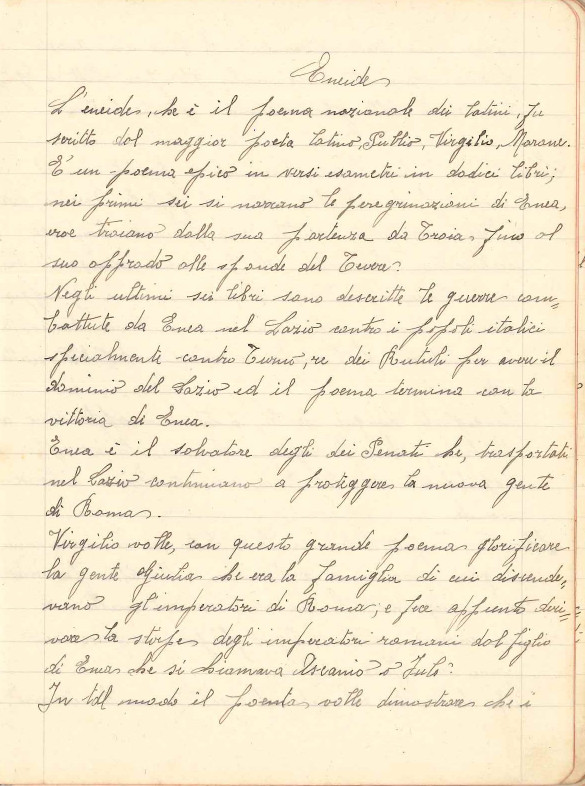 Eneide
L'eneide, che è il poema nazionale dei latini, fu
scritto dal maggior poeta latino, Publio, Virgilio, Marone.
E' un poema epico in versi esametri in dodici libri;
nei primi sei si narrano le peregrinazioni di Enea,
eroe troiano dalla sua partenza da Troia fino al
suo approdo alle sponde del Tevere.
Negli ultimi sei libri sono descritte le guerre com=
battute da Enea nel Lazio contro i popoli italici
specialmente contro Turno, re dei Rutuli per avere il
dominio del Lazio ed il poema termina con la
vittoria di Enea.
Enea è il salvatore degli dei Penati che, trasportati
nel Lazio continuano a proteggere la nuova gente
di Roma.
Virgilio volle, con questo grande poema glorificare
la gente Giulia che era la famiglia di cui discende=
vano gl'imperatori di Roma; e fece appunto deri=
vare la stirpe degli imperatori romani dal figlio
di Enea che si chiamava Ascanio o Julo.
In tal modo il poeta volle dimostrare che i